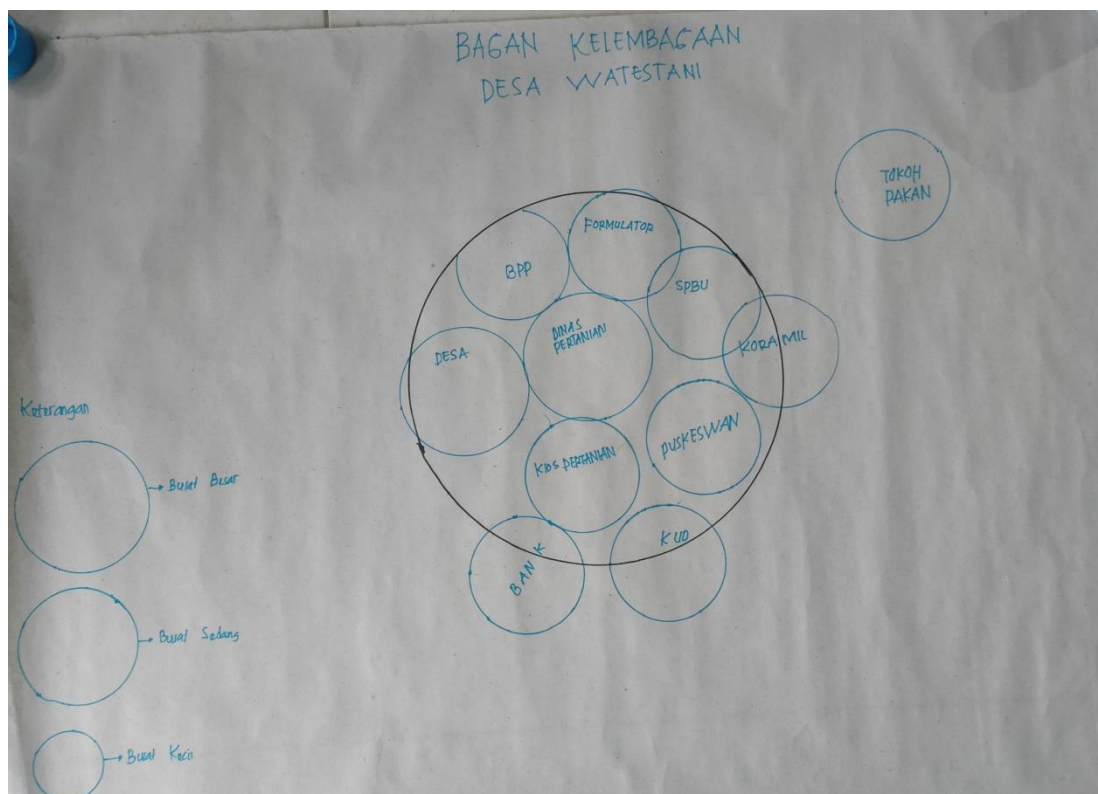 BAGAN KELEMBAGAAN
DESA WATESTANI
TOKOH
PAKAN
FORMULATOR
BPP
SPBU
DINAS
PERTANIAN
KORAMIL
DESA
PUSKESWAN
KIOS PERTANIAN
KUD
BANK
Keterangan
Bulat Besar
Bulat Sedang
Bulat Kecil